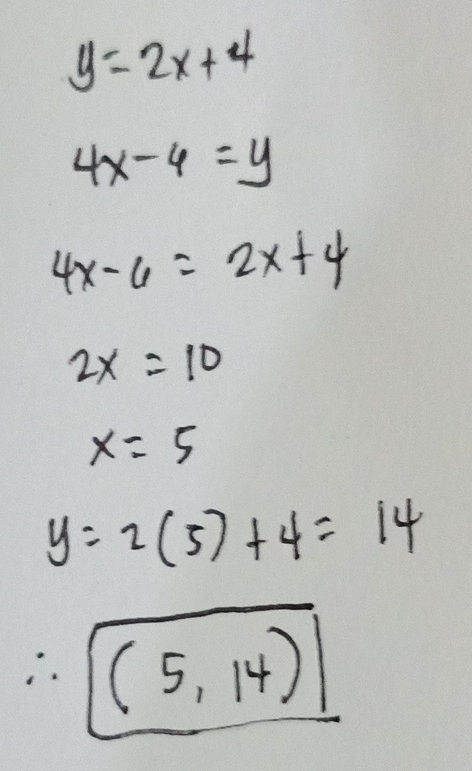 y = 2x + 4
4x - 6 = y
4x - 6 = 2x + 4
2x = 10
x = 5
y = 2(5) + 4 = 14
∴ (5, 14)